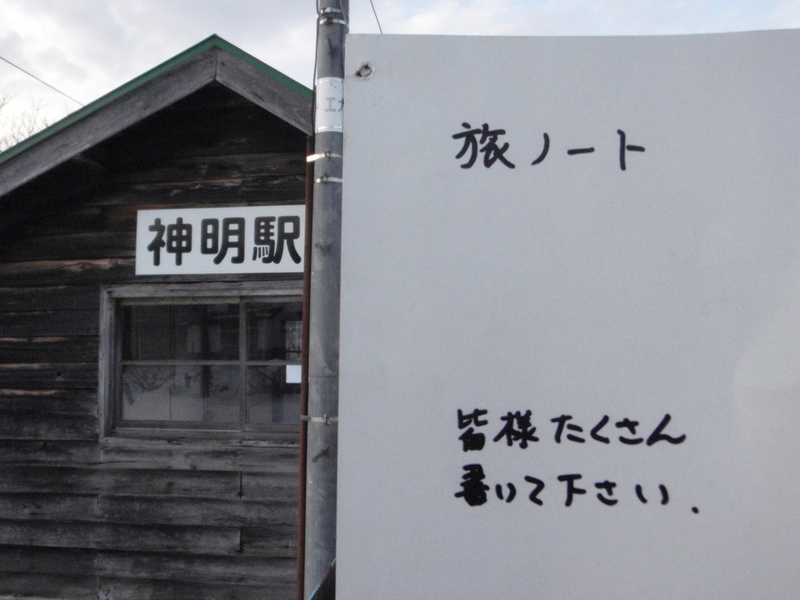 神明駅
旅ノート
皆様たくさん
書いて下さい.